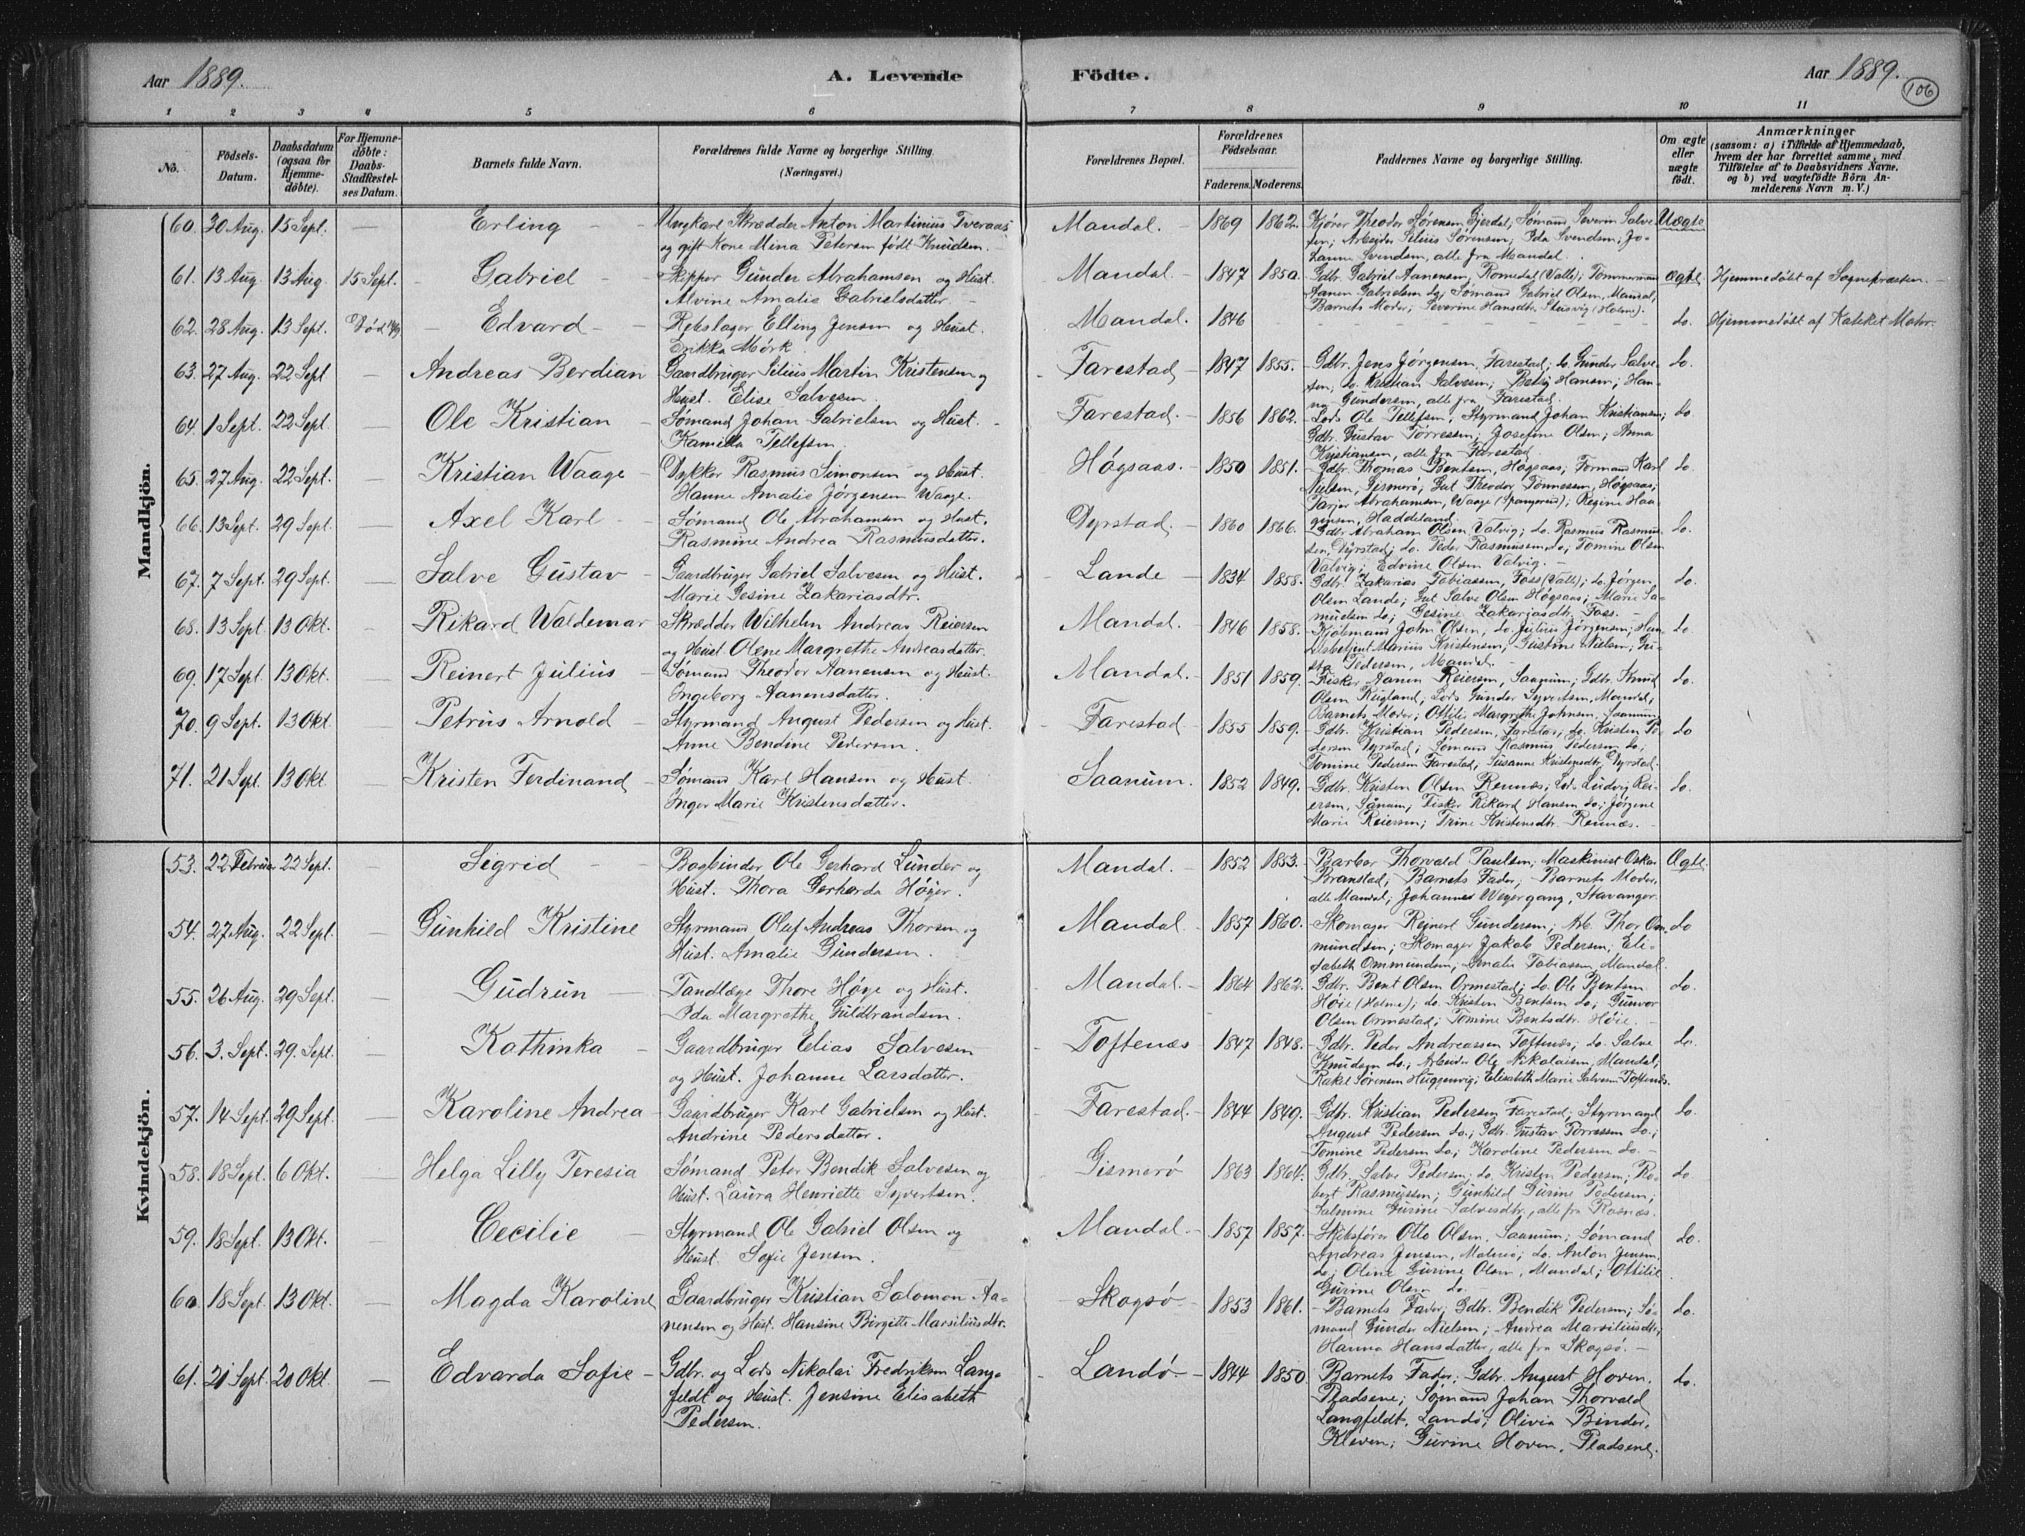 Aar 1889. A. Levende Födte. Aar 1889. 106
1 2 3 4 5 6 7 8 9 10 11
No. Födsels-Datum. Daabsdatum (ogsaa for Hjemmedöbte). For Hjemmedöbte: Daabs-Stadfæstelses Datum. Barnets fulde Navn. Forældrenes fulde Navne og borgerlige Stilling. (Næringsvei.) Forældrenes Bopæl. Forældrenes Födselsaar. Faderens. Moderens. Faddernes Navne og borgerlige Stilling. Om ægte eller uægte födt. Anmærkninger (saasom: a) i Tilfælde af Hjemmedaab, hvem der har forrettet samme, med Tilföielse af to Daabsvidners Navne, og b) ved uægtefödte Börn Anmelderens Navn m. V.)
Mandkjön.
60. 30 Aug. 15 Sept. — Erling — Ungkarl Skrædder Anton Martinius Tveraas Mandal. 1869 1862. Kjører Theodor Sørensen Gjerdal, Sømand Severin Salve- Uægte
og gift Kone Mina Petersen født Knudsen. sen; Arbejder Silius Sørensen; Ida Svendsen; Jo-
hanne Svendsen, alle fra Mandal.
61. 13 Aug 13 Aug 15 Sept. Gabriel Skipper Gunder Abrahamsen og Hust. Mandal. 1847 1850. Gdbr. Gabriel Aanensen, Romedal (Valle); Tømmermand Ægte Hjemmedøbt af Sognepræsten.
Alvine Amalie Gabrielsdatter. Aanen Gabrielsen do; Sømand Gabriel Olsen, Mandal,
Barnets Moder; Severine Hansdtr. (Holme).
62. 28 Aug. 13 Sept. Død Edvard Rebslager Elling Jensen og Hust. Mandal. 1846 do. Hjemmedøbt af Kateket Mohr.
Erikka Mørk.
63. 27 Aug. 22 Sept — Andreas Berdian Gaardbruger Silius Martin Kristensen og Farestad 1847 1855. Gdbr. Jens Jørgensen, Farestad; do. Gunder Salve- do.
Hust. Elise Salvesen. sen; do. Kristian Salvesen; Betsy Hansen; Han-
na Gundersen, alle fra Farestad.
64. 1 Sept. 22 Sept. — Ole Kristian Sømand Johan Gabrielsen og Hust. Farestad. 1856 1862. Lods Ole Tellefsen, Styrmand Johan Kristiansen; do
Kamilla Tellefsen. Gdbr. Gustav Torressen; Josefine Olsen; Anna
Kristiansen, alle fra Farestad
65. 27 Aug. 22 Sept. — Kristian Waage Dykker Rasmus Simonsen og Hust. Høgsaas. 1850 1851. Gdbr. Thomas Bentsen, Høgsaas; Formand Karl do.
Hanne Amalie Jørgensen Waage. Nielsen, Gismerø; Gut Theodor Tønnessen, Høgsaas;
Tarjer Abrahamsen, Waage (Spangereid); Regine Haa-
gensen, Haddeland.
66. 13 Sept. 29 Sept. — Axel Karl Sømand Ole Abrahamsen og Hust. Dyrstad. 1860 1866. Gdbr. Abraham Olsen Valvig; do. Rasmus Rasmus- do.
Rasmine Andrea Rasmusdatter. sen, Dyrstad; do. Peder Rasmussen do; Tomine Olsen
Valvig; Edvine Olsen Valvig.
67. 7 Sept. 29 Sept. — Salve Gustav Gaardbruger Gabriel Salvesen og Hust. Lande 1834 1858. Gdbr. Zakarias Tobiassen, Foss (Valle); do. Jørgen do.
Marie Gesine Zakariasdtr. Olsen Lande; Gut Salve Olsen Høgsaas; Marie Sa-
muelsen do; Gesine Zakariasdtr. Foss.
68. 13 Sept 13 Okt. — Rikard Waldemar Skrædder Wilhelm Andreas Reiersen Mandal. 1846 1858. Kjøbmand John Olsen, do. Julius Jørgensen; Han- do
og Hust. Olene Margrethe Andreasdatter. delsbetjent Marius Kristensen; Gustine Nielsen;
Pedersen, Mandal.
69. 17 Sept. 13 Okt. — Reinert Julius Sømand Theodor Aanensen og Hust. Mandal. 1851 1859. Fisker Aanen Reiersen, Saanum; Gdbr. Knud do.
Ingeborg Aanensdatter. Olsen Rugland; Lods Gunder Syvertsen, Mandal;
Barnets Moder; Ottilie Margrethe Johnsen, Saanum.
70. 9 Sept. 13 Okt — Petrus Arnold Styrmand August Pedersen og Hust. Farestad 1855 1859. Gdbr. Kristian Pedersen, Farestad; do. Kristen Pe- do
Anne Bendine Pedersen. dersen Dyrstad; Sømand Rasmus Pedersen do;
Tomine Pedersen Farestad; Susanne Kristensdtr. Dyrstad.
71. 21 Sept. 13 Okt — Kristen Ferdinand Sømand Karl Hansen og Hust Saanum. 1852 1849. Gdbr. Kristen Olsen Rennæs; Lods Ludvig Rei- do.
Inger Marie Kristensdatter. ersen, Sånum; Fisker Rikard Hansen do; Jørgine
Marie Reiersen; Trine Kristensdtr. Rennæs.
Kvindekjön.
53. 22 Februar 22 Sept. — Sigrid Bogbinder Ole Gerhard Lunder og Mandal. 1852 1853. Barber Thorvald Paulsen; Maskinist Oskar Ægte
Hust. Thora Gerharda Høyer. Branstad; Barnets Fader; Barnets Moder,
alle Mandal; Johannes Weyergang, Stavanger.
54. 27 Aug. 22 Sept. — Gunhild Kristine Styrmand Oluf Andreas Thorsen og Mandal 1857 1860. Skomager Reinert Gundersen; Arb. Thor Om- do
Hust. Amalie Gundersen. mundsen; Skomager Jakob Pedersen; Eli-
sabeth Ommundsen, Amalie Tobiassen, Mandal.
55. 26 Aug. 29 Sept. — Gudrun Tandlæge Thore Høye og Hust. Mandal. 1864 1862. Gdbr. Bent Olsen Ormestad; do. Ole Bentsen do.
Ida Margrethe Guldbrandsen. Høie (Holme); do. Kristen Bentsen do; Gunvor
Olsen Ormestad; Tomine Bentsdtr. Høie.
56. 3. Sept. 29. Sept. — Kathinka Gaardbruger Elias Salvesen Toftenæs 1847 1848. Gdbr. Peder Andreassen Toftenæs; do. Salve do.
og Hust. Johanne Larsdatter. Knudsen do.; Arbeider Ole Nikolaisen, Mandal;
Rakel Sørensen Huggenvig; Elisabeth Marie Salvesen Toftenæs.
57. 14 Sept. 29 Sept. — Karoline Andrea Gaardbruger Karl Gabrielsen og Hust. Farestad. 1844 1849. Gdbr. Kristian Pedersen Farestad; Styrmand do.
Andrine Pedersdatter. August Pedersen do.; Gdbr. Gustav Torressen do.;
Tomine Pedersen do; Karoline Pedersen do.
58. 18 Sept 6 Okt. — Helga Lilly Teresia Sømand Peter Bendik Salvesen og Gismerø 1863 1864. Gdbr. Salve Pedersen; do. Kristen Pedersen; Ro- do
Hust. Laura Henriette Syvertsen. bert Rasmussen; Gunhild Gurine Pedersen;
Salmine Gurine Salvesdtr., alle fra Rosnæs.
59. 18 Sept. 13 Okt. — Cecilie Styrmand Ole Gabriel Olsen og Mandal. 1857 1857. Skibsfører Otto Olsen, Saanum; Sømand do.
Hust. Sofie Jensen. Andreas Jensen, Malmø; do. Anton Jensen
do; Oline Gurine Olsen, Mandal; Ottilie
Gurine Olsen do.
60. 18 Sept. 13 Okt. — Magda Karoline Gaardbruger Kristian Salomon Aa- Skogsø 1853 1861. Barnets Fader; Gdbr. Bendik Pedersen; Sø- do.
nensen og Hust. Hansine Birgitte Marsiliusdtr. mand Gunder Nielsen; Andrea Marsiliusdtr;
Hanna Hansdatter, alle fra Skogsø.
61. 21 Sept. 20 Okt — Edvarda Sofie Gdbr. og Lods Nikolai Fredriksen Lang- Landø 1844 1850 Barnets Fader, Gdbr. August Hoven, do.
feldt og Hust. Jensine Elisabeth Pladsene; Sømand Johan Thorvald
Pedersen. Langfeldt, Landø; Olivia Binder,
Kleven; Gurine Hoven, Pladsene.